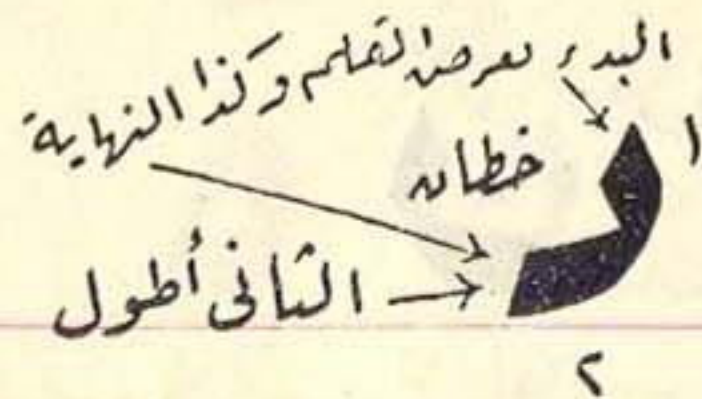 البدء بعرض القلم وكذا النهاية
١
خطان
الثانى أطول
٢